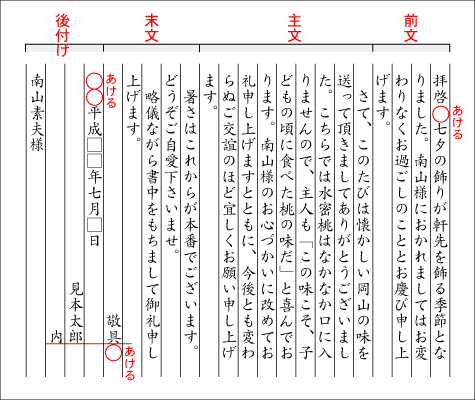 前文
主文
末文
後付け
拝啓〇七夕の飾りが軒先を飾る季節とな
あける
りました。南山様におかれましてはお変
わりなくお過ごしのこととお慶び申し上
げます。
さて、このたびは懐かしい岡山の味を
送って頂きましてありがとうございまし
た。こちらでは水密桃はなかなか口に入
りませんので、主人も「この味こそ、子
どもの頃に食べた桃の味だ」と喜んでお
ります。南山様のお心づかいに改めてお
礼申し上げますとともに、今後とも変わ
らぬご交誼のほど宜しくお願い申し上げ
ます。
暑さはこれからが本番でございます。
どうぞご自愛下さいませ。
略儀ながら書中をもちまして御礼申し
上げます。
敬具〇
あける
あける
〇〇平成□□年七月□日
見本太郎
内
南山素夫様